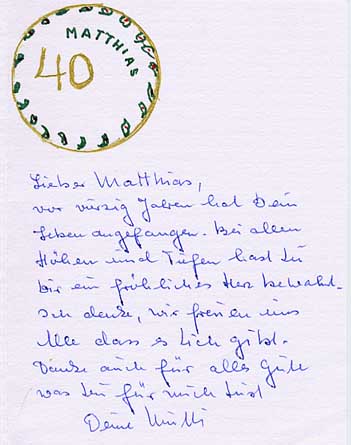 MATTHIAS
40
Lieber Matthias,
vor vierzig Jahren hat Dein
Leben angefangen. Bei allen
Höhen und Tiefen hast Du
Dir ein fröhliches Herz bewahrt.
Ich denke, wir freuen uns
Alle dass es Dich gibt.
Danke auch für alles Gute
was Du für mich tust
Deine Mutti